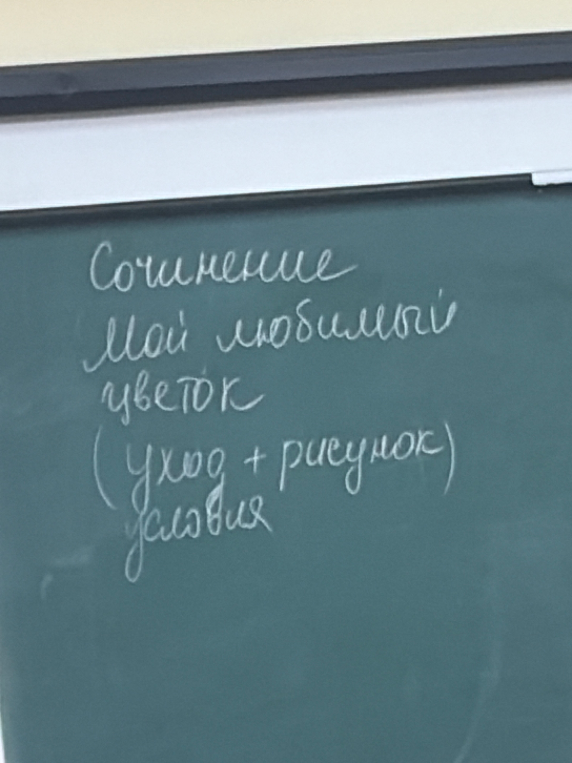 Сочинение
Мой любимый
цветок
(уход + рисунок)
условия